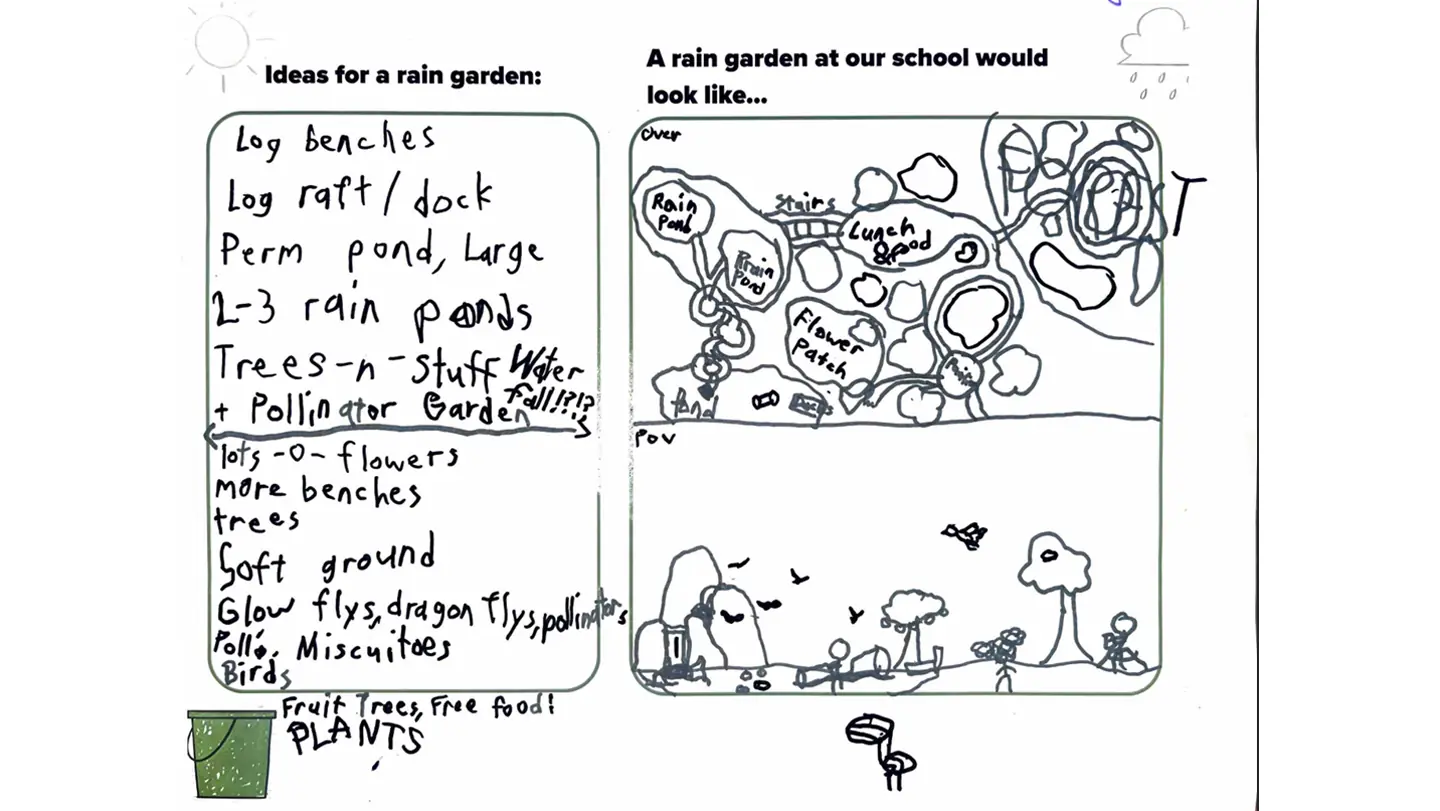 Ideas for a rain garden:
Log benches
Log raft / dock
Perm pond, Large
2-3 rain ponds
Trees-n-stuff Water
fall!?!?
+ Pollinator Garden
lots -o- flowers
more benches
trees
Soft ground
Glow flys, dragon flys, pollinators
Miscuitoes
Birds
Fruit Trees, Free food!
PLANTS
A rain garden at our school would
look like...
Over
Rain
Pond
Rain
Pond
Stairs
Lunch
& food
Flower
Patch
Pond
T
POV